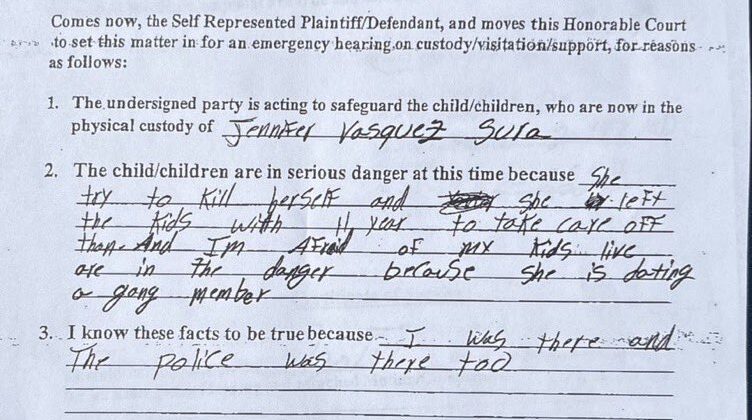 Comes now, the Self Represented Plaintiff/Defendant, and moves this Honorable Court
to set this matter in for an emergency hearing on custody/visitation/support, for reasons
as follows:
1. The undersigned party is acting to safeguard the child/children, who are now in the
physical custody of Jennifer Vasquez Sura
2. The child/children are in serious danger at this time because She
try to kill herself and she left
the kids with 11 year to take care off
than. And I'm Afraid of my kids live
are in the danger because she is dating
a gang member
3. I know these facts to be true because I was there and
The police was there too